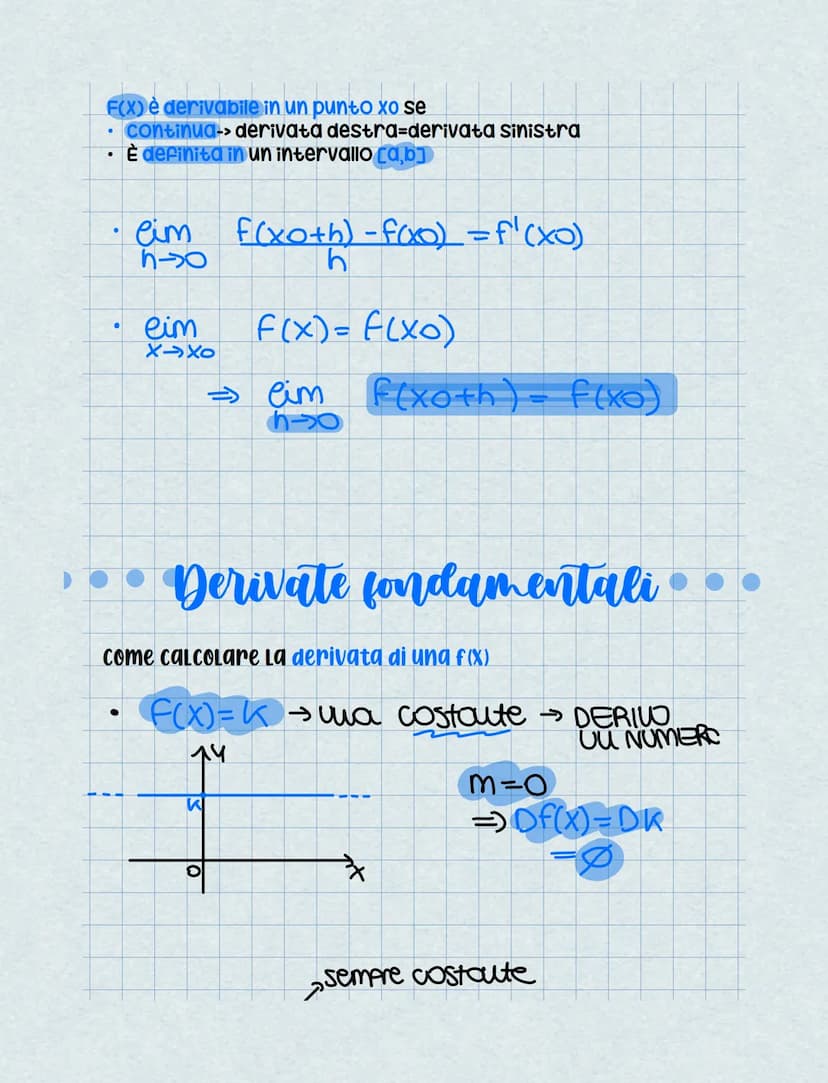 F(X) è derivabile in un punto xo se
• continua-> derivata destra=derivata sinistra
• È definita in un intervallo [a,b]
• lim f(xo+h) - f(xo) = f'(xo)
h->0 h
• lim F(x) = f(xo)
x->xo
=> lim f(xo+h) = f(xo)
h->0
Derivate fondamentali
come calcolare la derivata di una f(x)
• F(x)=K → una costante → DERIVO
UN NUMERO
Y
m=0
K
=> Df(x)=DK
=Ø
O
X
sempre costante